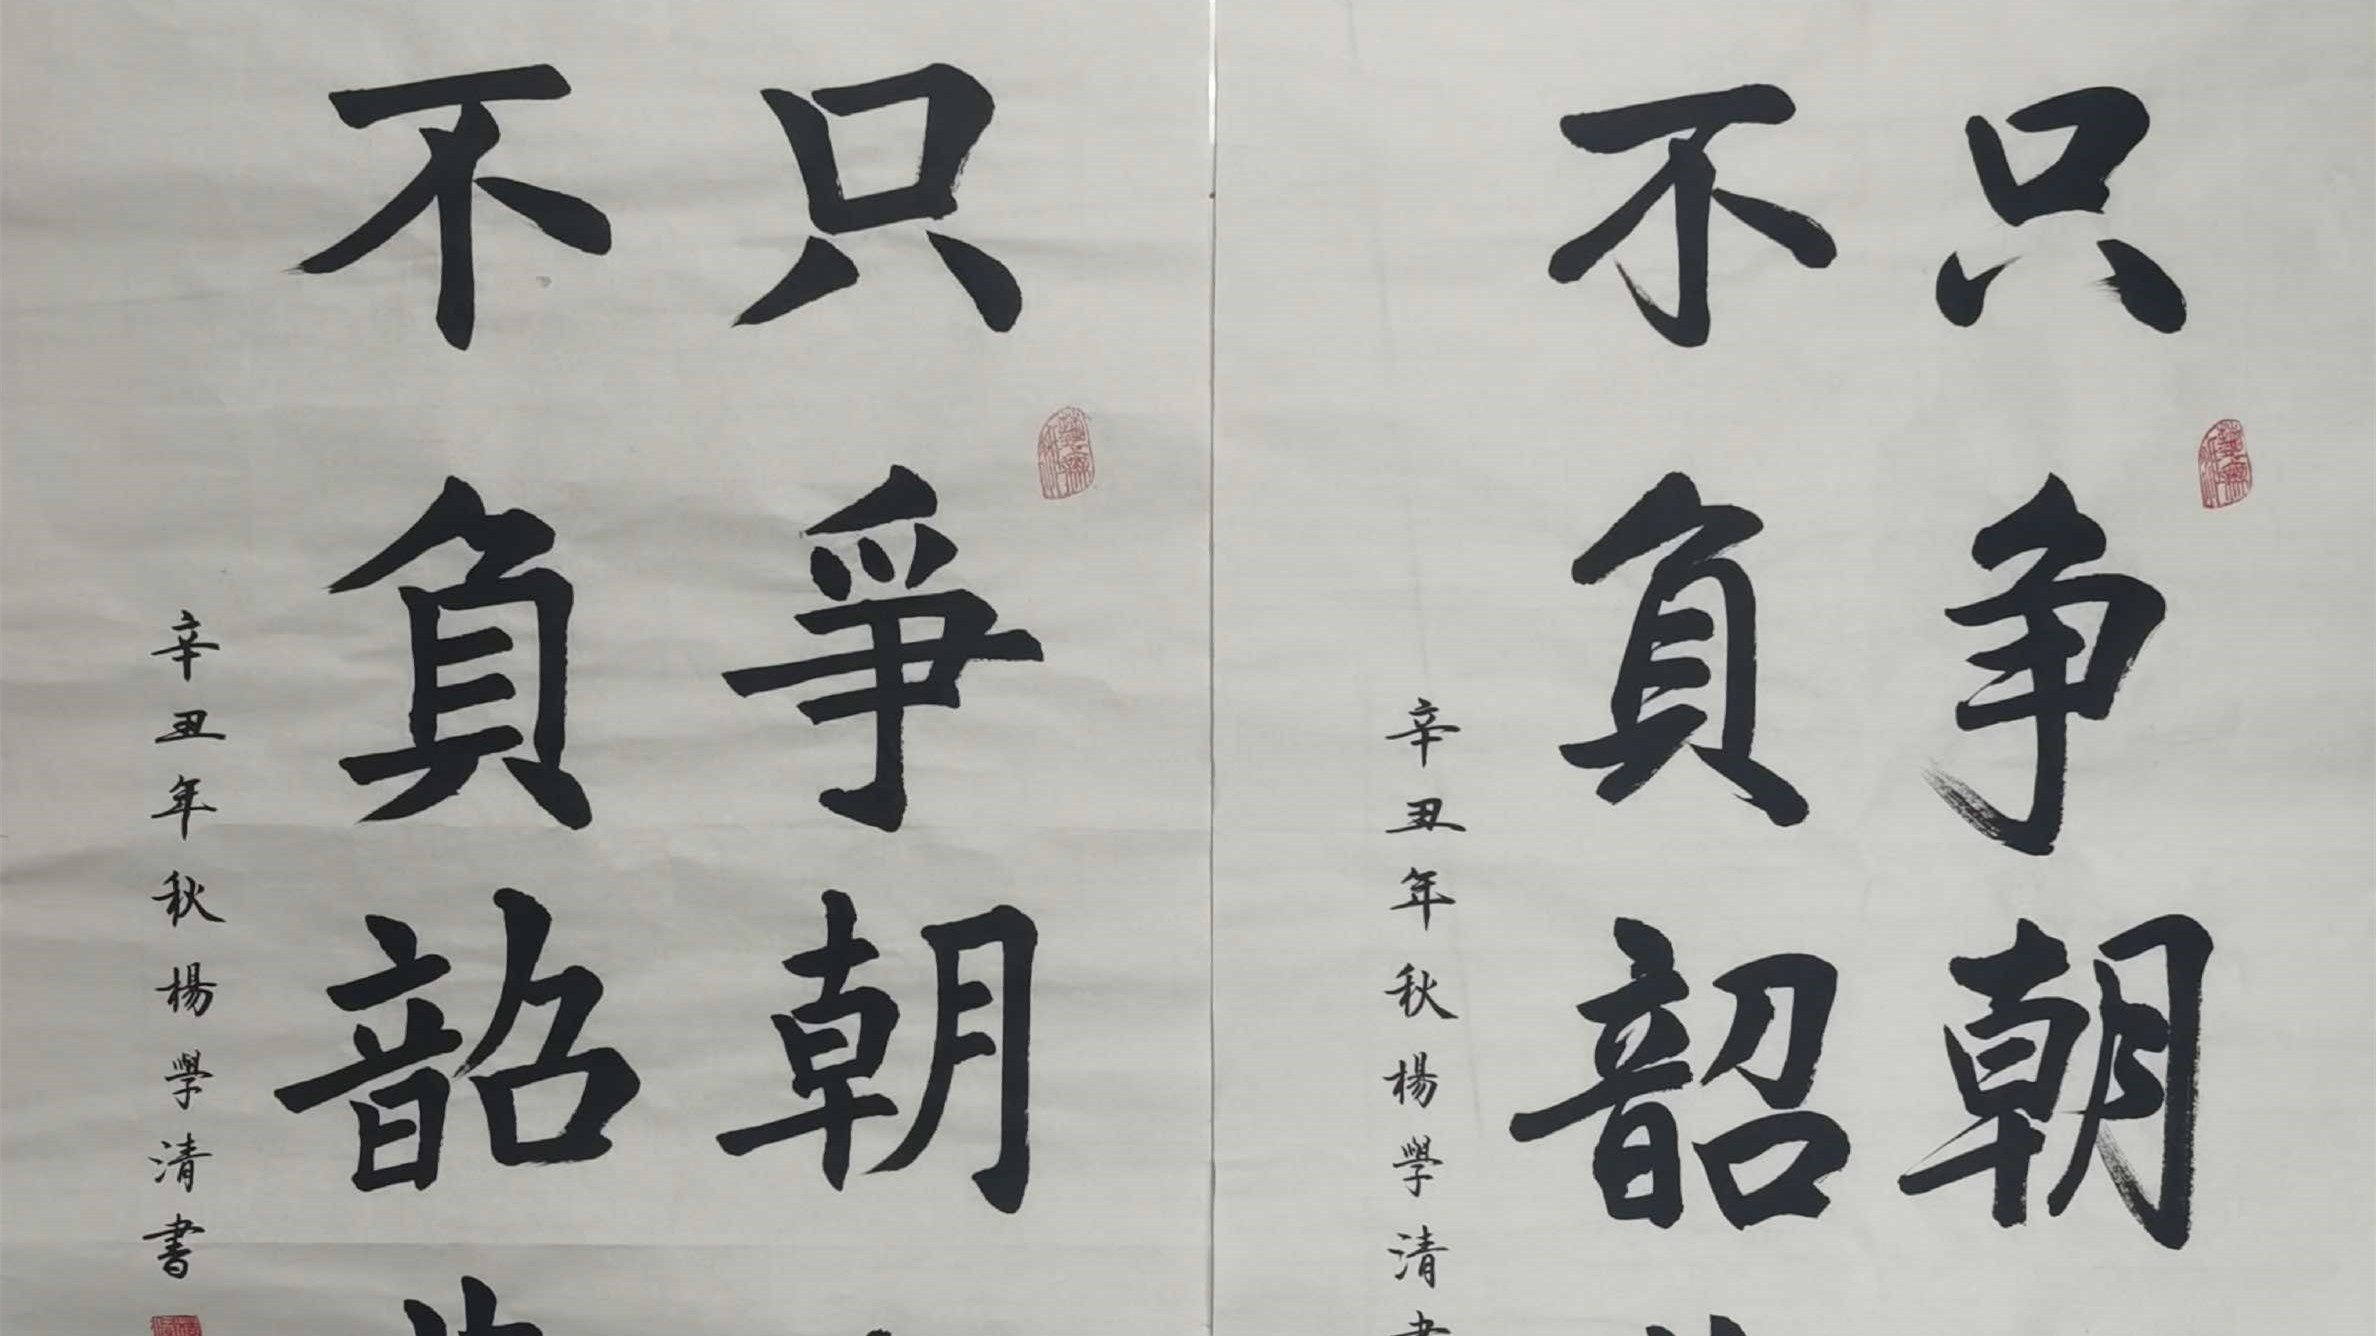 只爭朝
不負韶
辛丑年秋楊學清書
只争朝
不負韶
辛丑年秋楊學清書